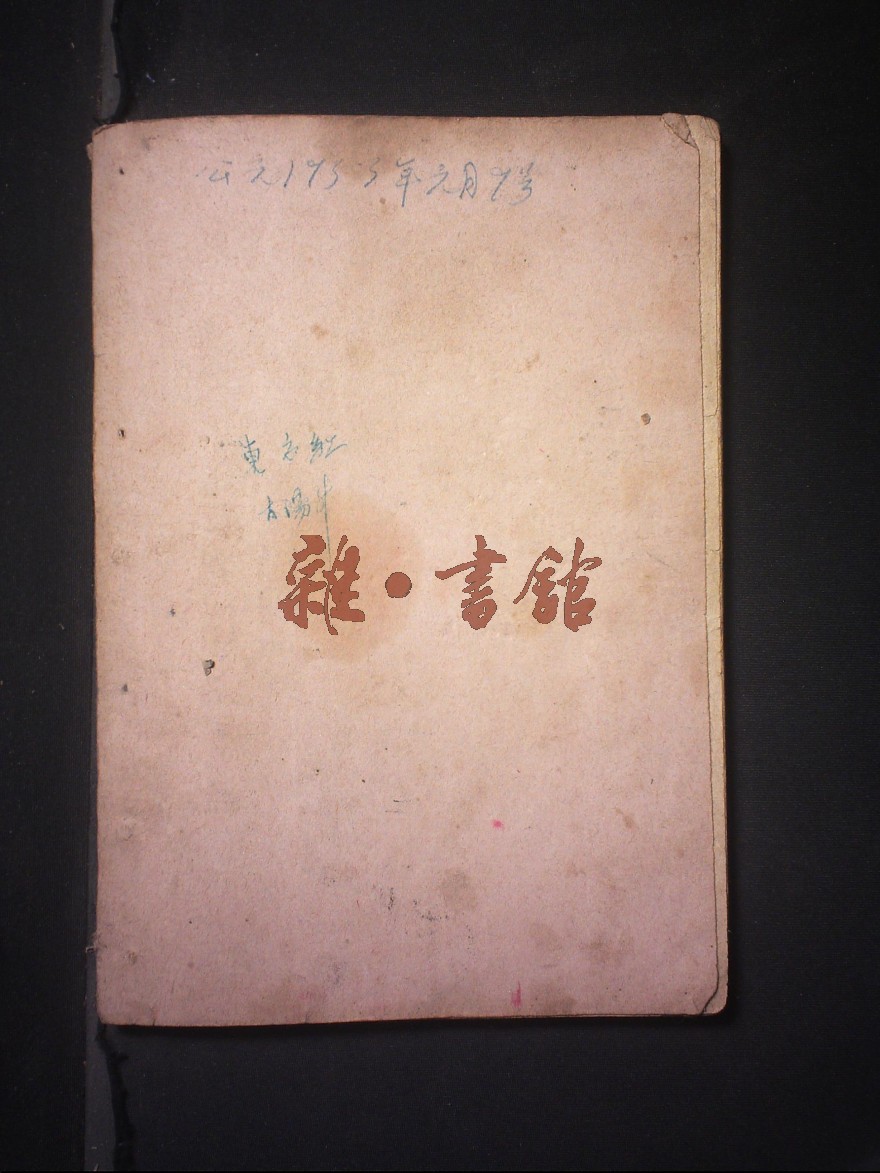 公元1953年元月9号
東方紅
太陽升
雜·書館